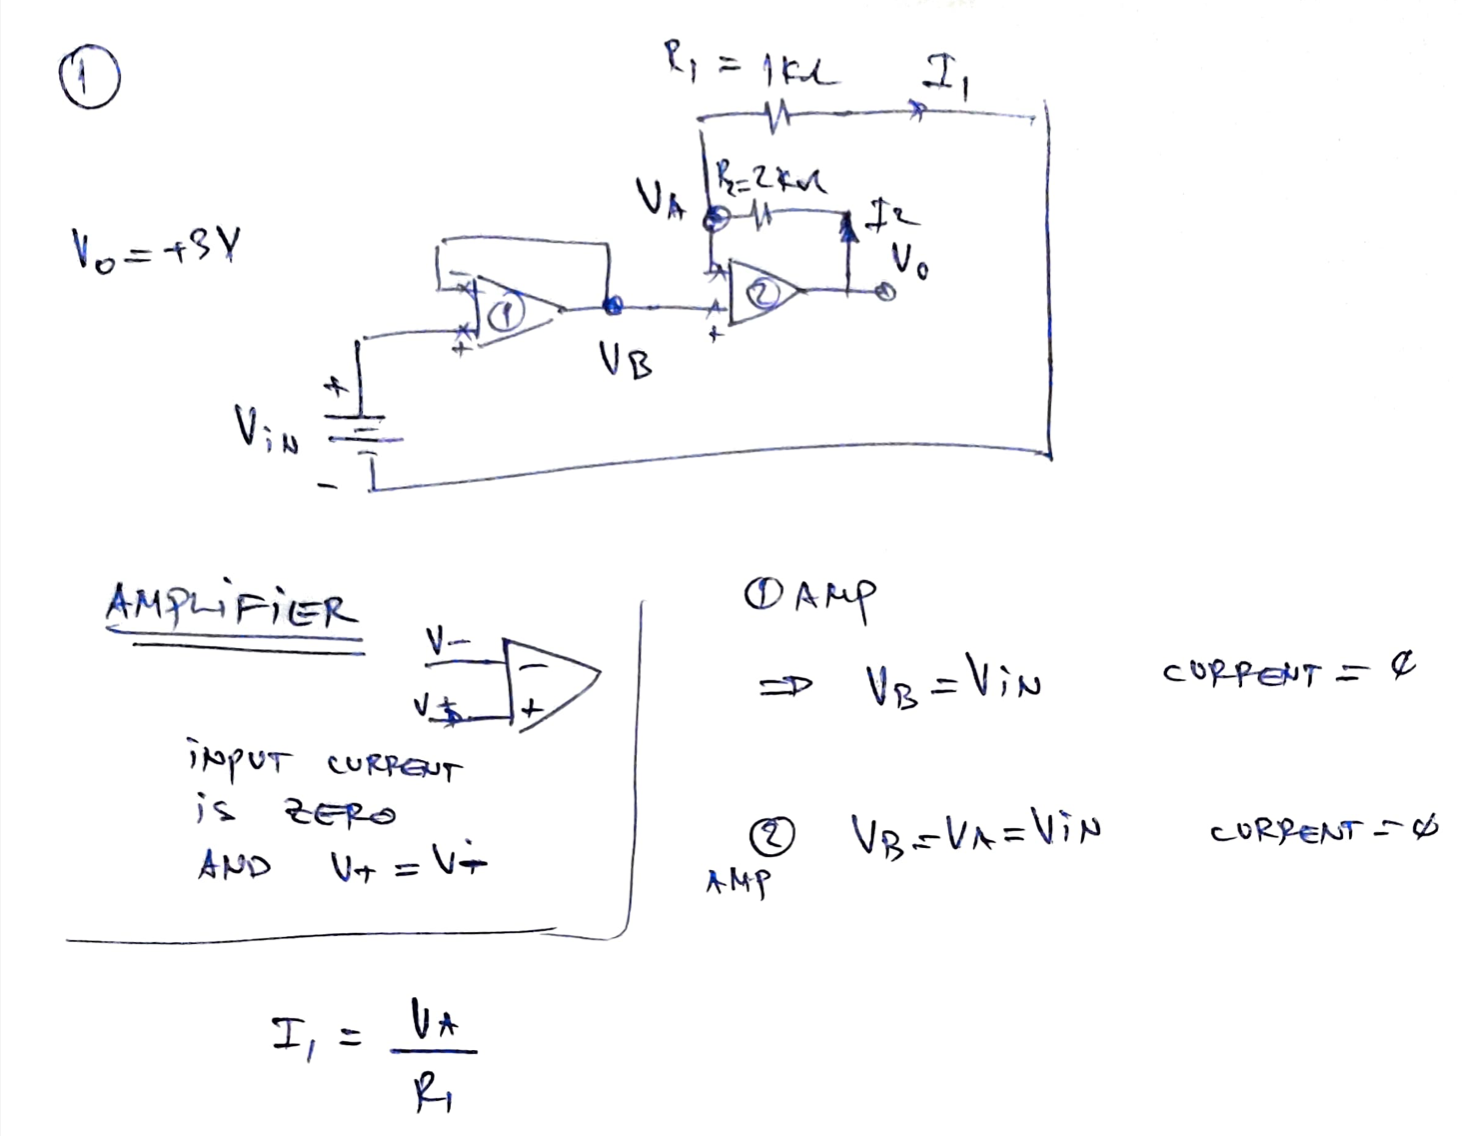 ①
R₁ = 1kΩ I₁
R₂=2kΩ
VA
I₂
V₀ = +3V
V₀
−
①
②
+
+
VB
+
ViN
−
AMPLiFiER
V−
−
V+
+
iNPUT CURRENT
iS ZERO
AND V+ = V−
① AMP
⇒ VB = ViN CURRENT = ∅
② VB = VA = ViN CURRENT = ∅
AMP
I₁ = VA / R₁